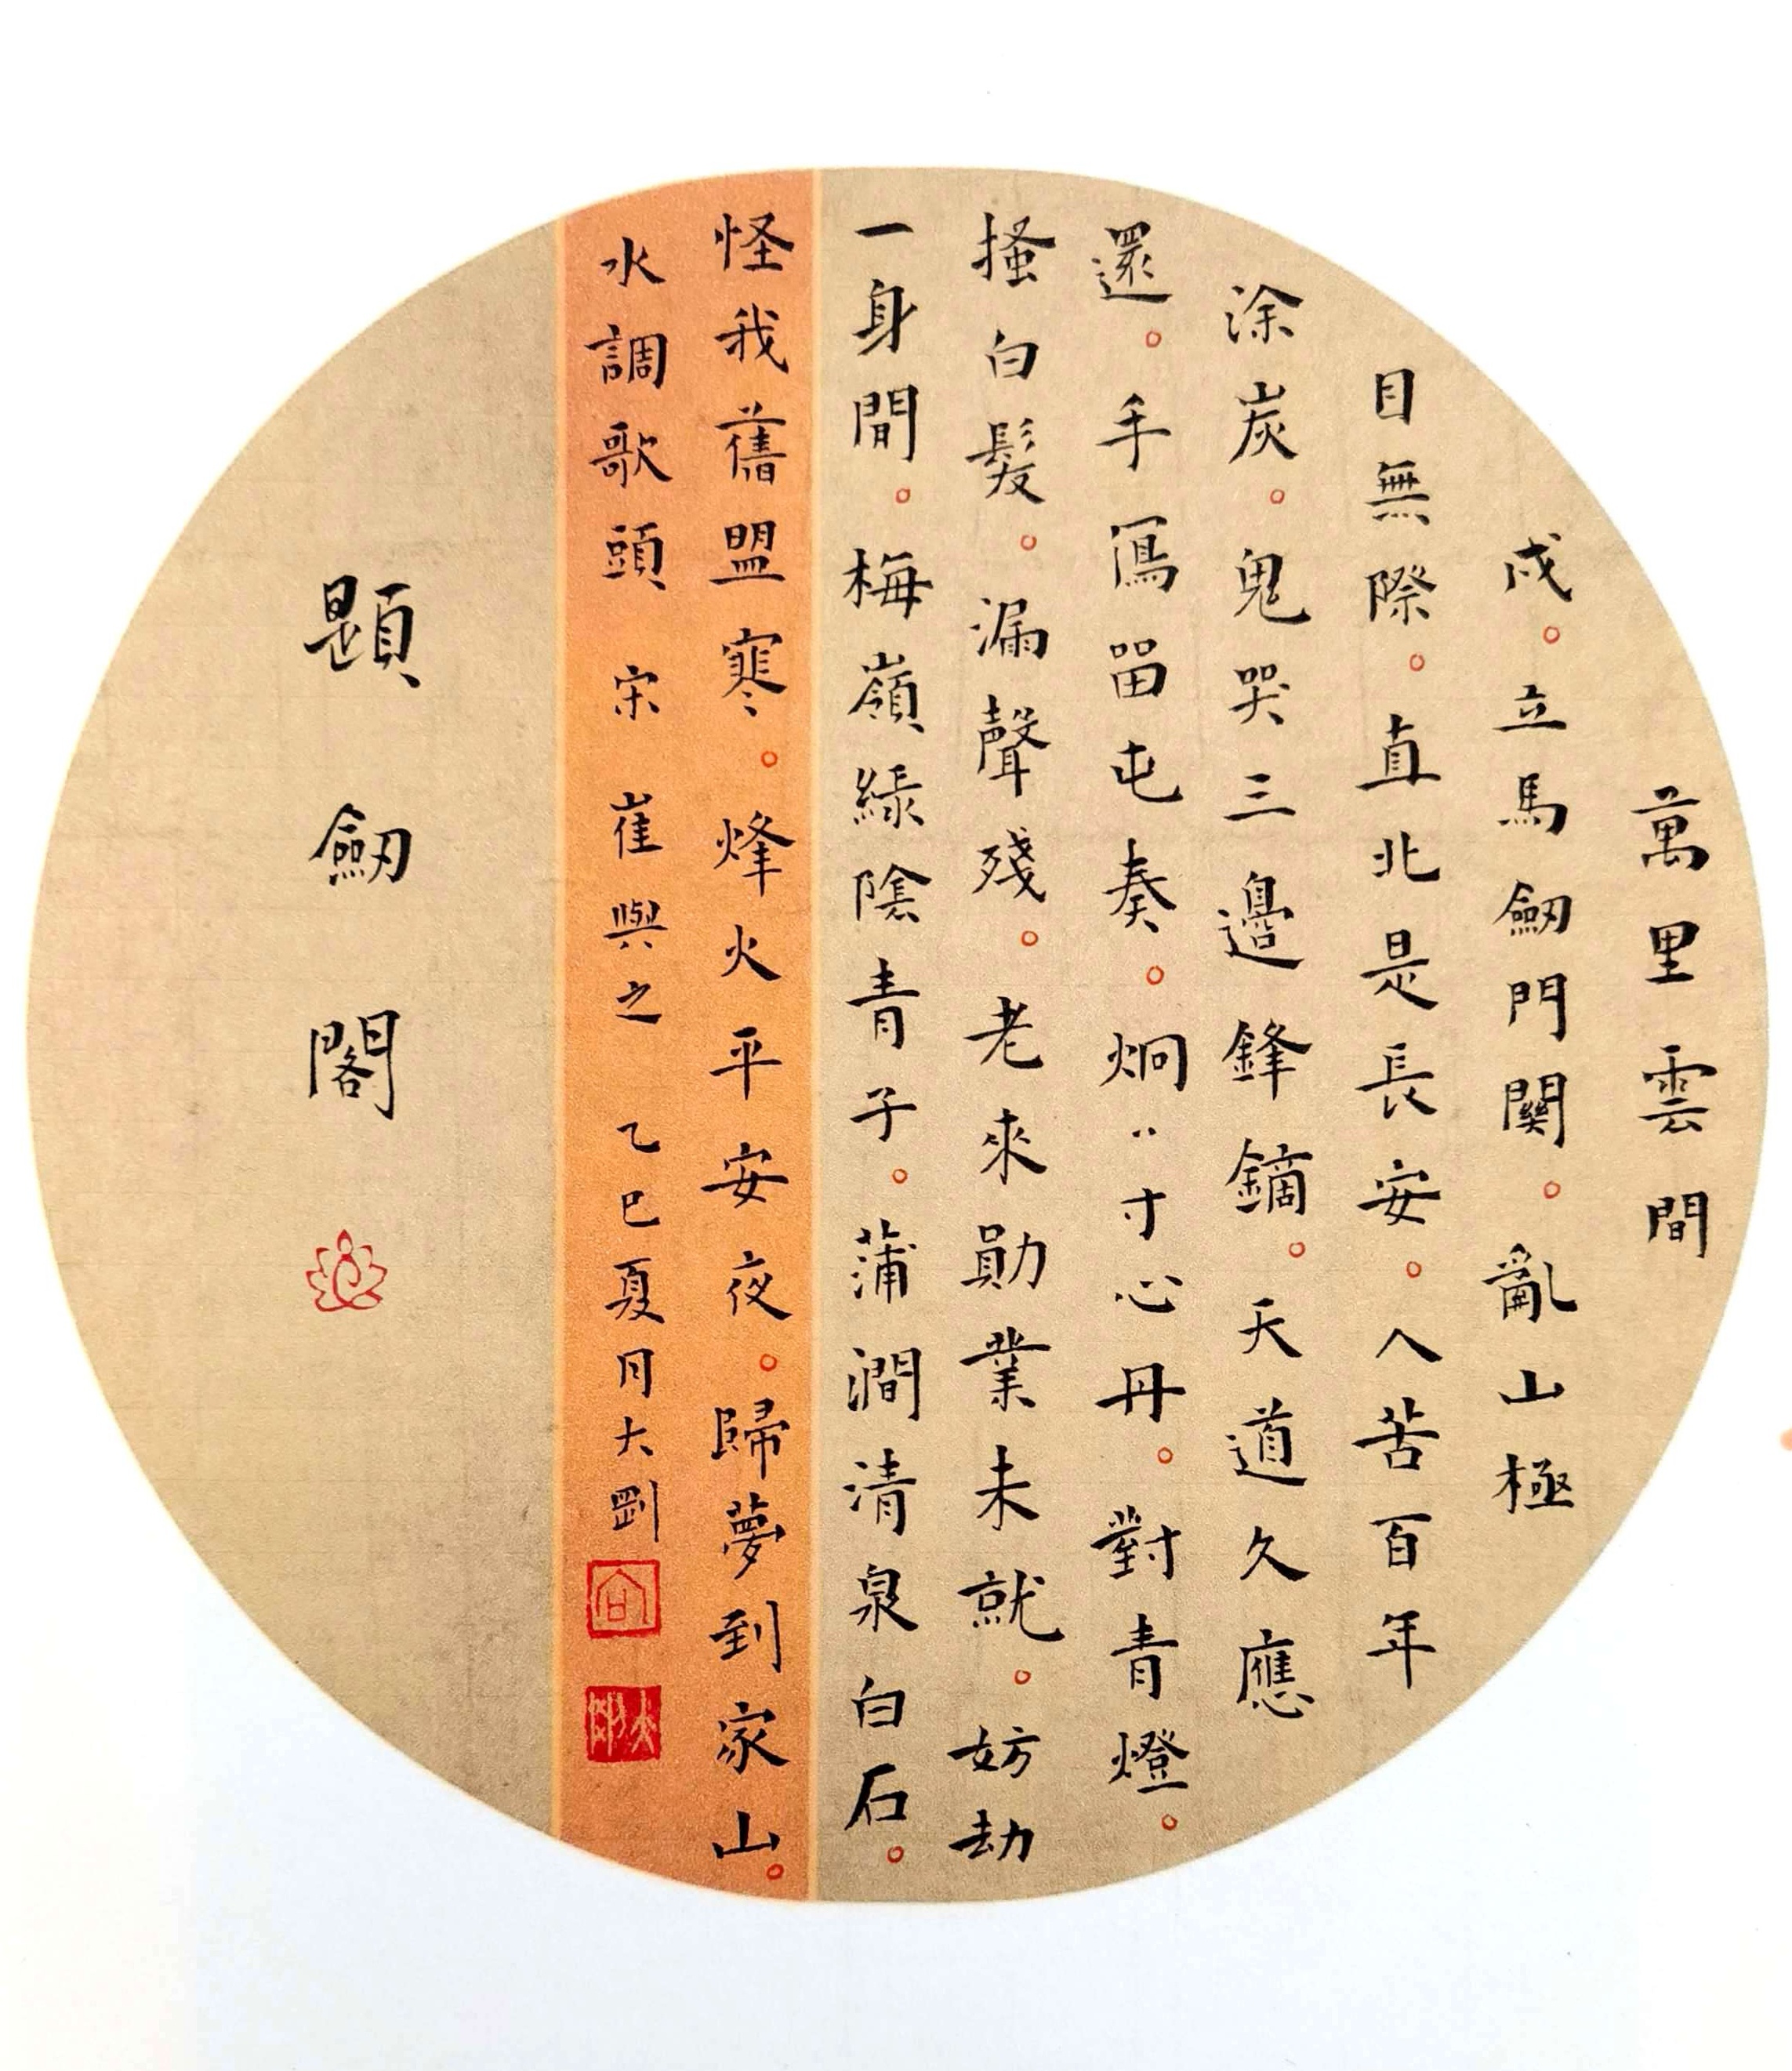 萬里雲間
戍。立馬劒門關。亂山極
目無際。直北是長安。人苦百年
涂炭。鬼哭三邊鋒鏑。天道久應
還。手寫留屯奏。炯〻寸心丹。對青燈。
搔白髮。漏聲殘。老來勛業未就。妨劫
一身間。梅嶺綠陰青子。蒲澗清泉白石。
怪我舊盟寒。烽火平安夜。歸夢到家山。
水調歌頭 宋 崔與之 乙巳夏月大剛
題劒閣